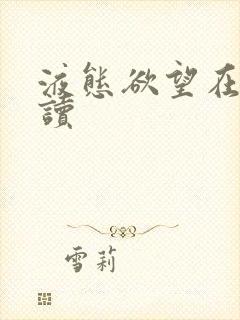 液態欲望在
讀
雪莉